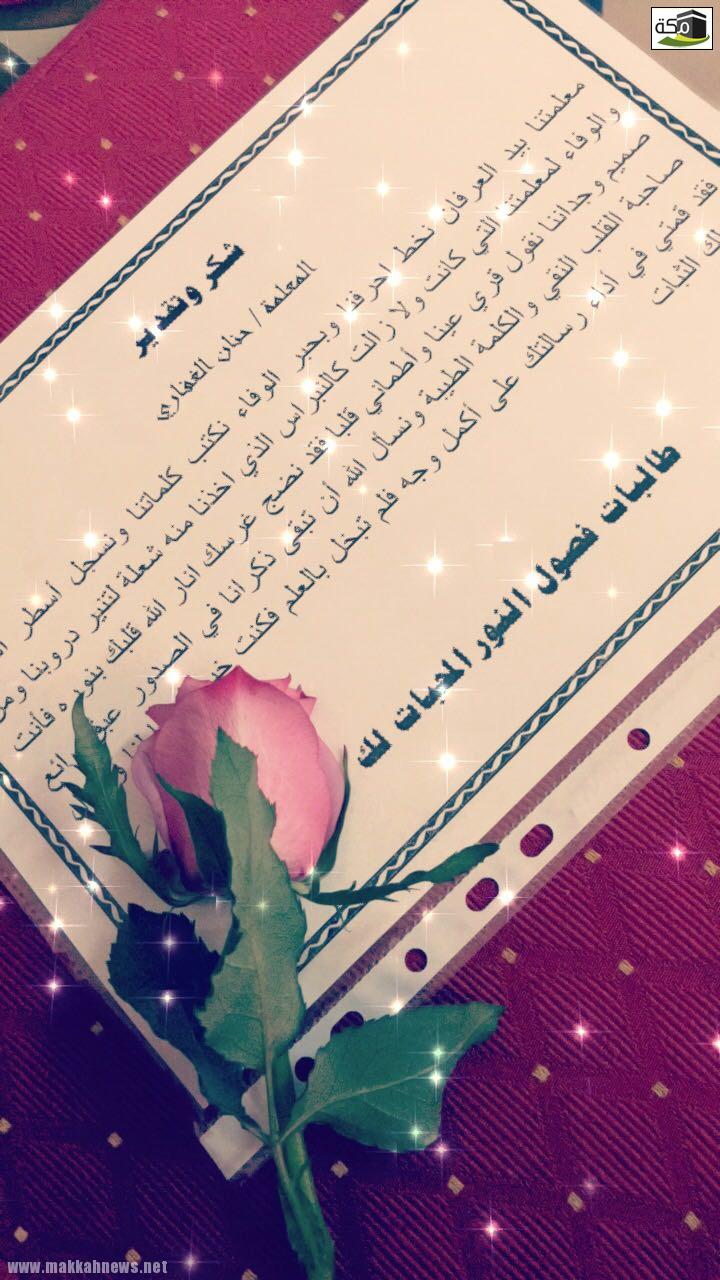 مكة
شكر وتقدير
المعلمة / حنان الغماري
معلمتنا بيد العرفان نخط احرفنا وبحبر الوفاء نكتب كلماتنا ونسجل أسطر
والوفاء لمعلمتنا التي كانت ولا زالت كالنبراس الذي اخذنا منه شعلة لتنير دروبنا ومن
صميم وجداننا نقول قري عينا وأطمأني قلبا فقد نضج غرسك انار الله قلبك بنوره فأنت
صاحبة القلب النقي والكلمة الطيبة ونسأل الله أن تبقى ذكرانا في الصدور
فقد قمتي في أداء رسالتك على أكمل وجه فلم تبخل بالعلم فكنت
الثبات
طالبات فصول النور المحبات لك
www.makkahnews.net